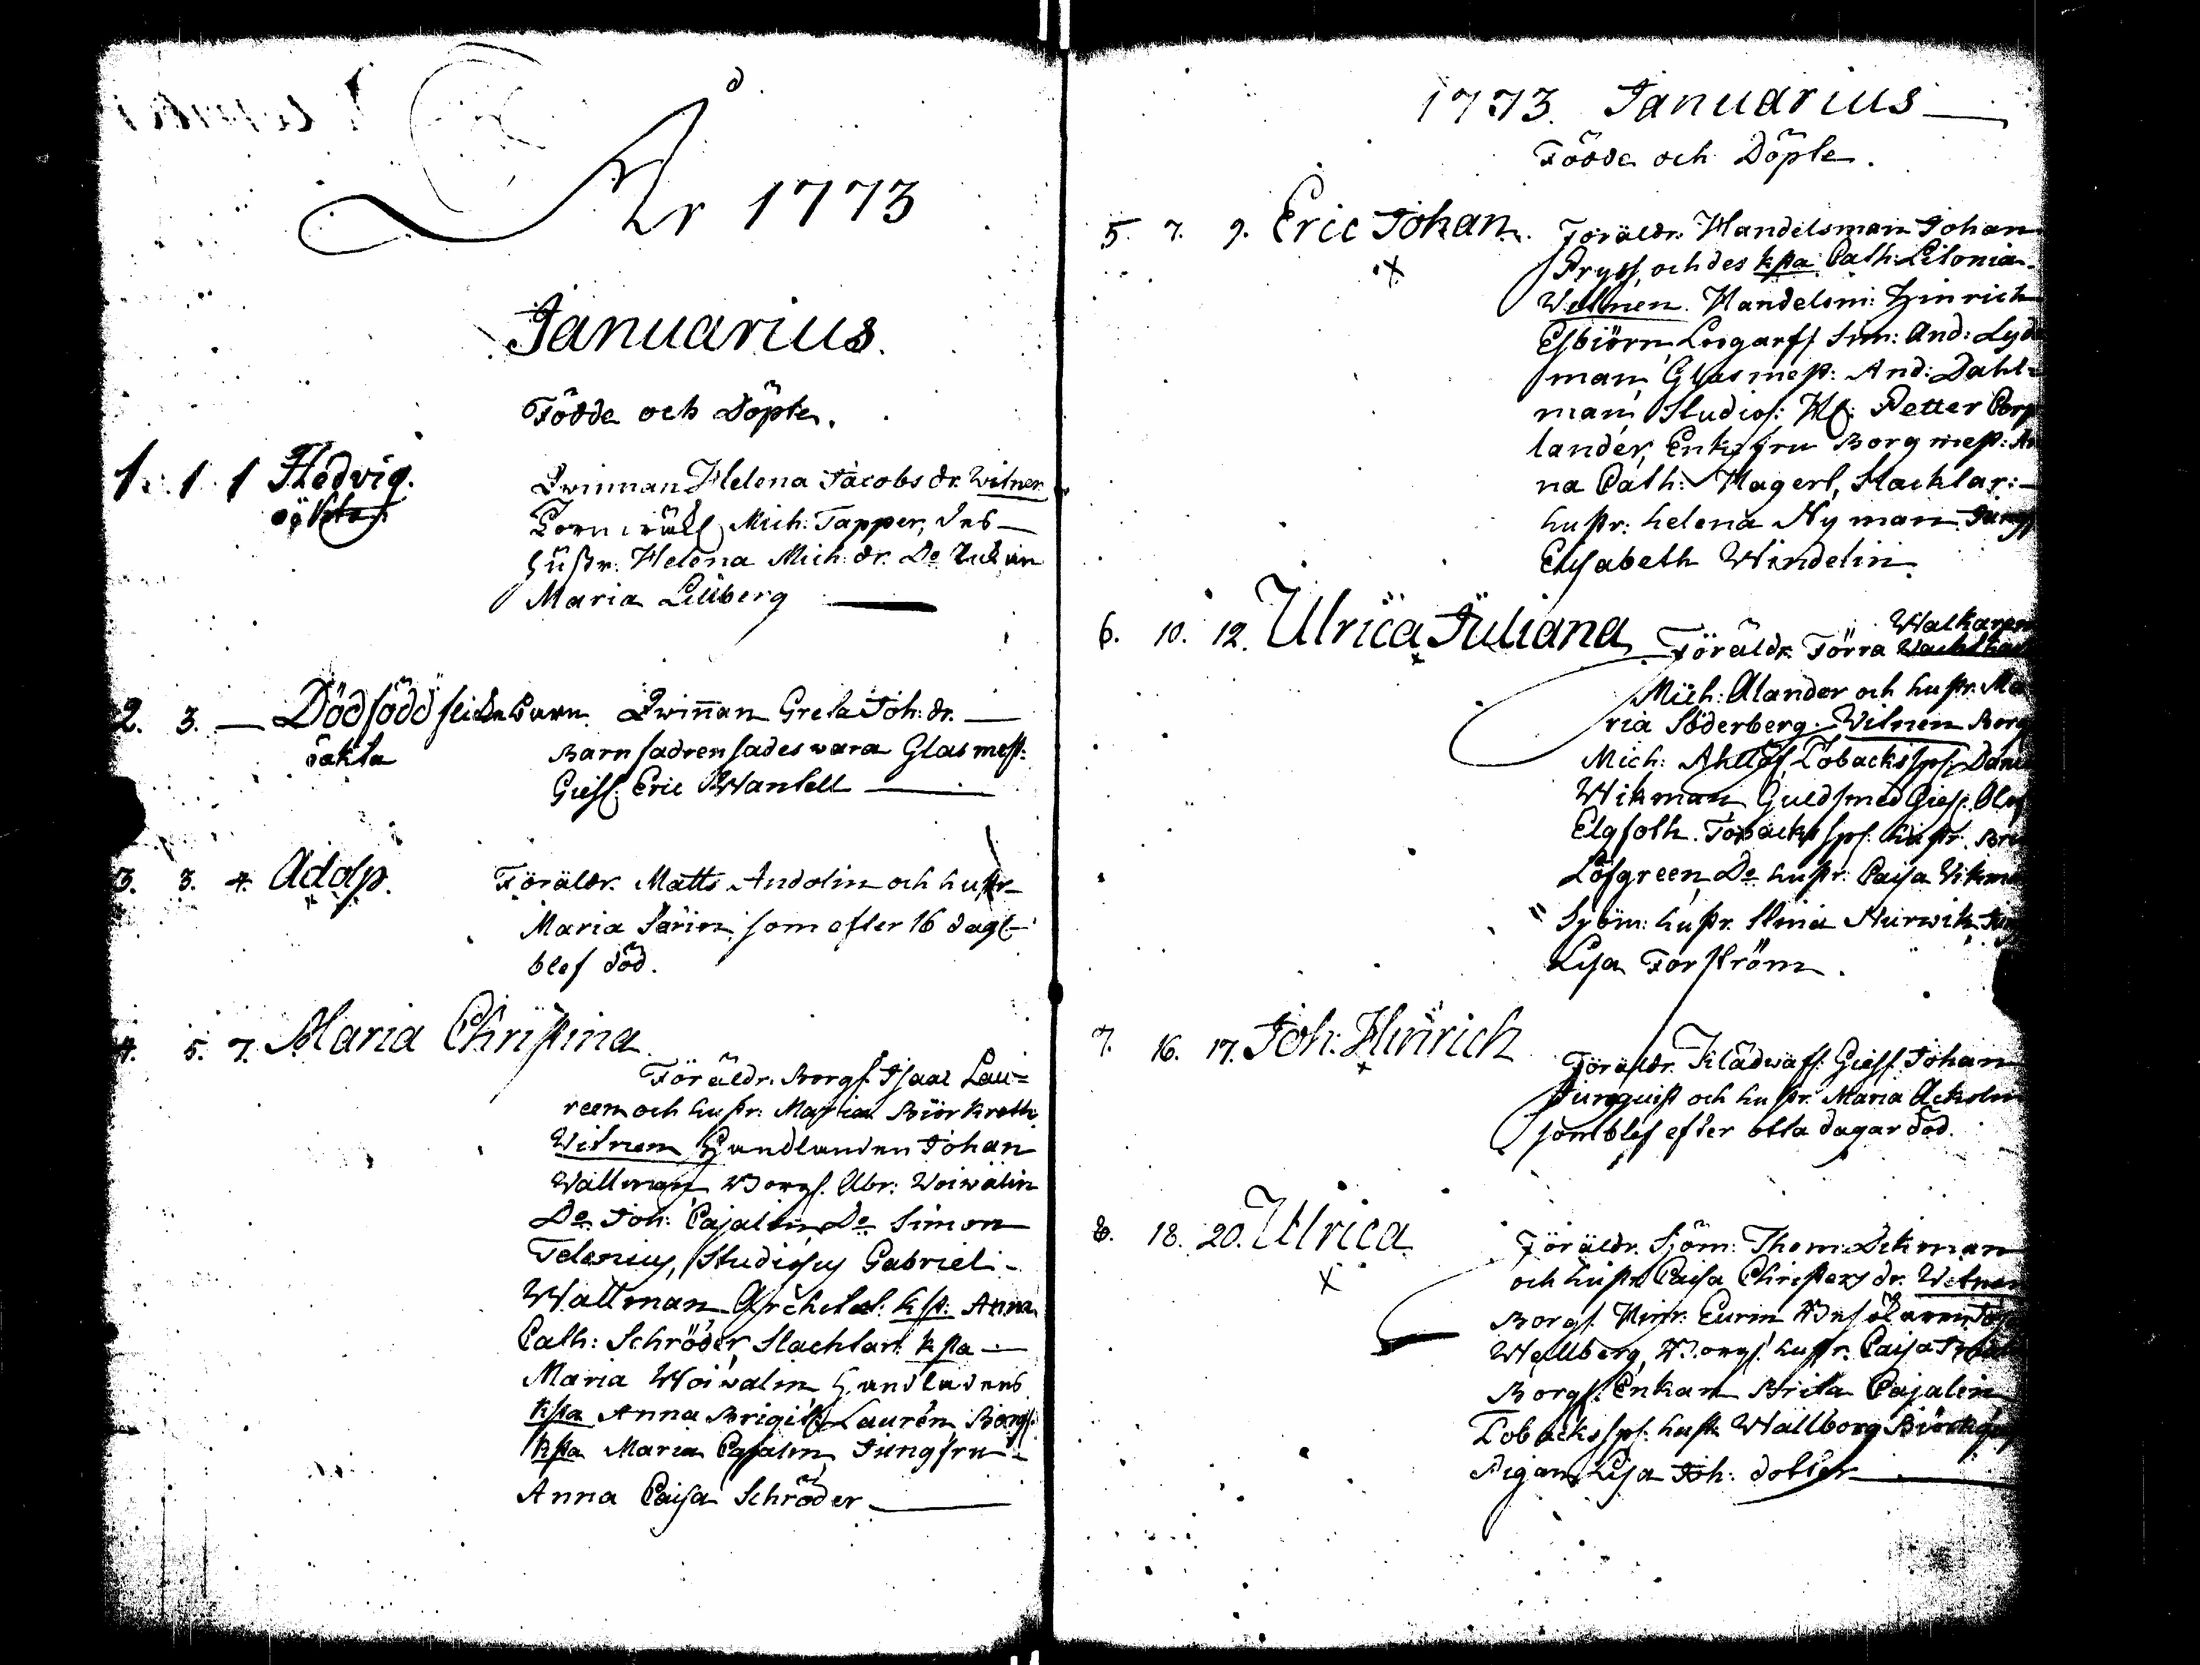 År 1773
Januarius.
Födde och Döpte.
1. 1. 1 Hedvig. Qwinnan Helena Jacobs dr. Witnen
oächta Mich: Tapper, des
Hustr. Helena Mich: dr. Do
Maria Liliberg
2. 3. — Dödfödd flicke barn. Qwinnan Greta Joh: dr. —
oäkta Barnfadren sades wara Glasmest:
Gesl. Eric Wantell
3. 3. 4. Adolp. Föräldr. Matts Andolin och hustr
Maria Serin, som efter 16 dagr
blef död.
4. 5. 7. Maria Christina
Föräldr. Borgs. Isaac Lau=
reen och hustr: Maria Biörkroth
Witnen Handlanden Johan
Wallman Borgs. Abr: Woiwalin
Do Joh: Cajalin Do Simon
Telenius, Studiosus Gabriel
Wallman ksp: Anna
Cath: Schröder, Slachtar: ksta
Maria Woiwalin Handladens
ksta Anna Brigitt Laurén, Borgs.
ksta Maria Cajalen Jungfru
Anna Caisa Schröder
1773. Januarius
Födde och Döpte.
5. 7. 9. Eric Johan. Föräldr. Handelsman Johan
Pryss, och des ksta Cath: Litonia
Witnen. Handelsm: Hinrich
Esbiörn And:
man Glasmest: And: Dahl=
man, Studios: Petter
lander, Enkefru Borgmest:
na Cath: Hagert, Slachtar:
hustr: helena Nyman
Elisabeth Windelin.
6. 10. 12. Ulrica Juliana Föräldr. Förra Walkaren
Mich: Alander och hustr. Ma
ria Söderberg. Witnen Borg
Mich: Ahllöf, Tobacks sps:
Wikman Guldsmed Gies.
Elgfoth. Tobacks sps. hustr.
Löfgreen, Do hustr: Caisa
Siöm: hustr. Stina Nurwik
Lisa Forström.
7. 16. 17. Joh: Hinrich Föräldr. Klädwäf: Giesl. Johan
Jungquist och hustr. Maria
som blef efter otta dagar död.
8. 18. 20. Ulrica Föräldr. Siöm: Thom: Ekman
och hustr. Caisa Christers dr. Witnen
Borgs. Hinr: Eurin
Wellberg, Borgs. hustr. Caisa
Borgs. Enkan Brita Cajalin
Tobacks sps. hustr Wallborg
Pigan Lisa Joh: dotter